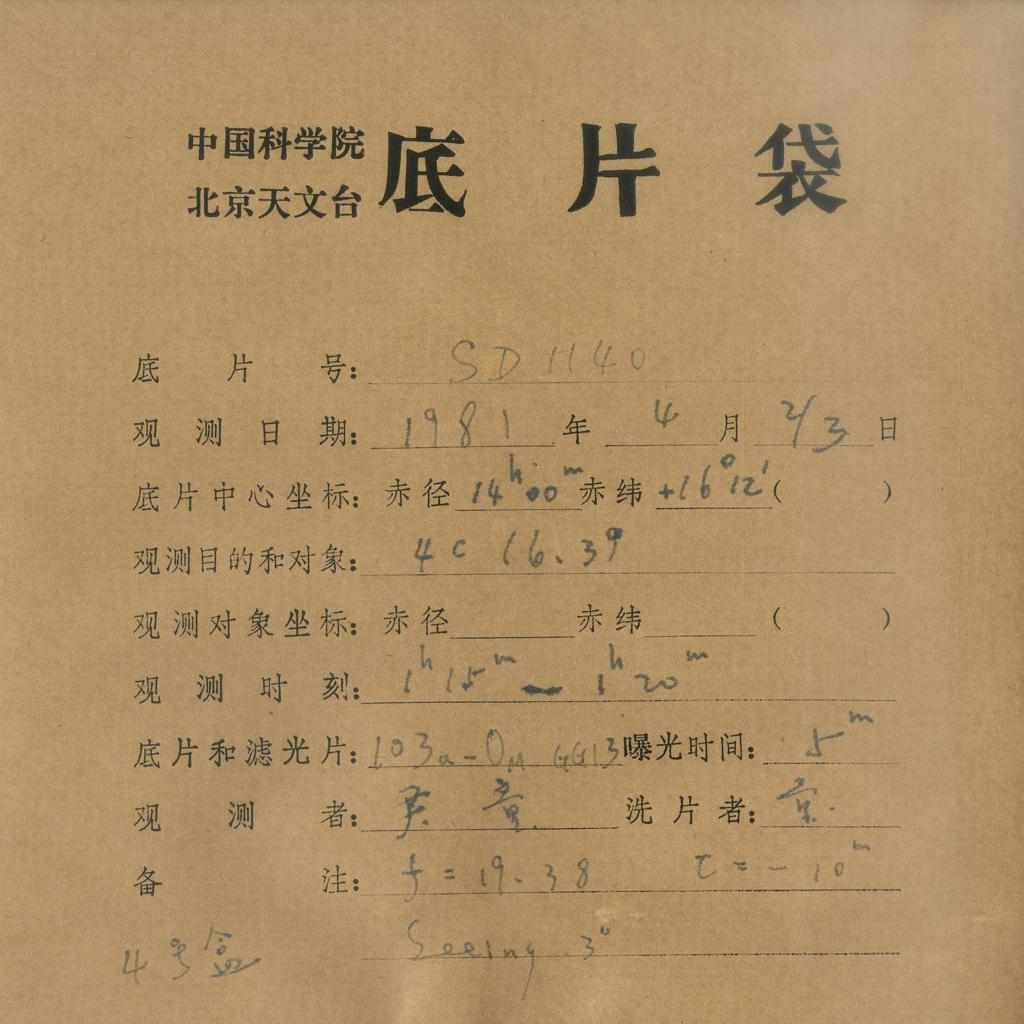 中国科学院
北京天文台 底片袋
底片号: SD 1140
观测日期: 1981 年 4 月 2/3 日
底片中心坐标: 赤径 14ʰ00ᵐ 赤纬 +16°12′ ( )
观测目的和对象: 4C 16.39
观测对象坐标: 赤径 赤纬 ( )
观测时刻: 1ʰ15ᵐ — 1ʰ20ᵐ
底片和滤光片: 103a-O GG13 曝光时间: 5ᵐ
观测者: 洗片者:
备注: f = 19.38 τ = - 10ᵐ
4号盒 Seeing 3″